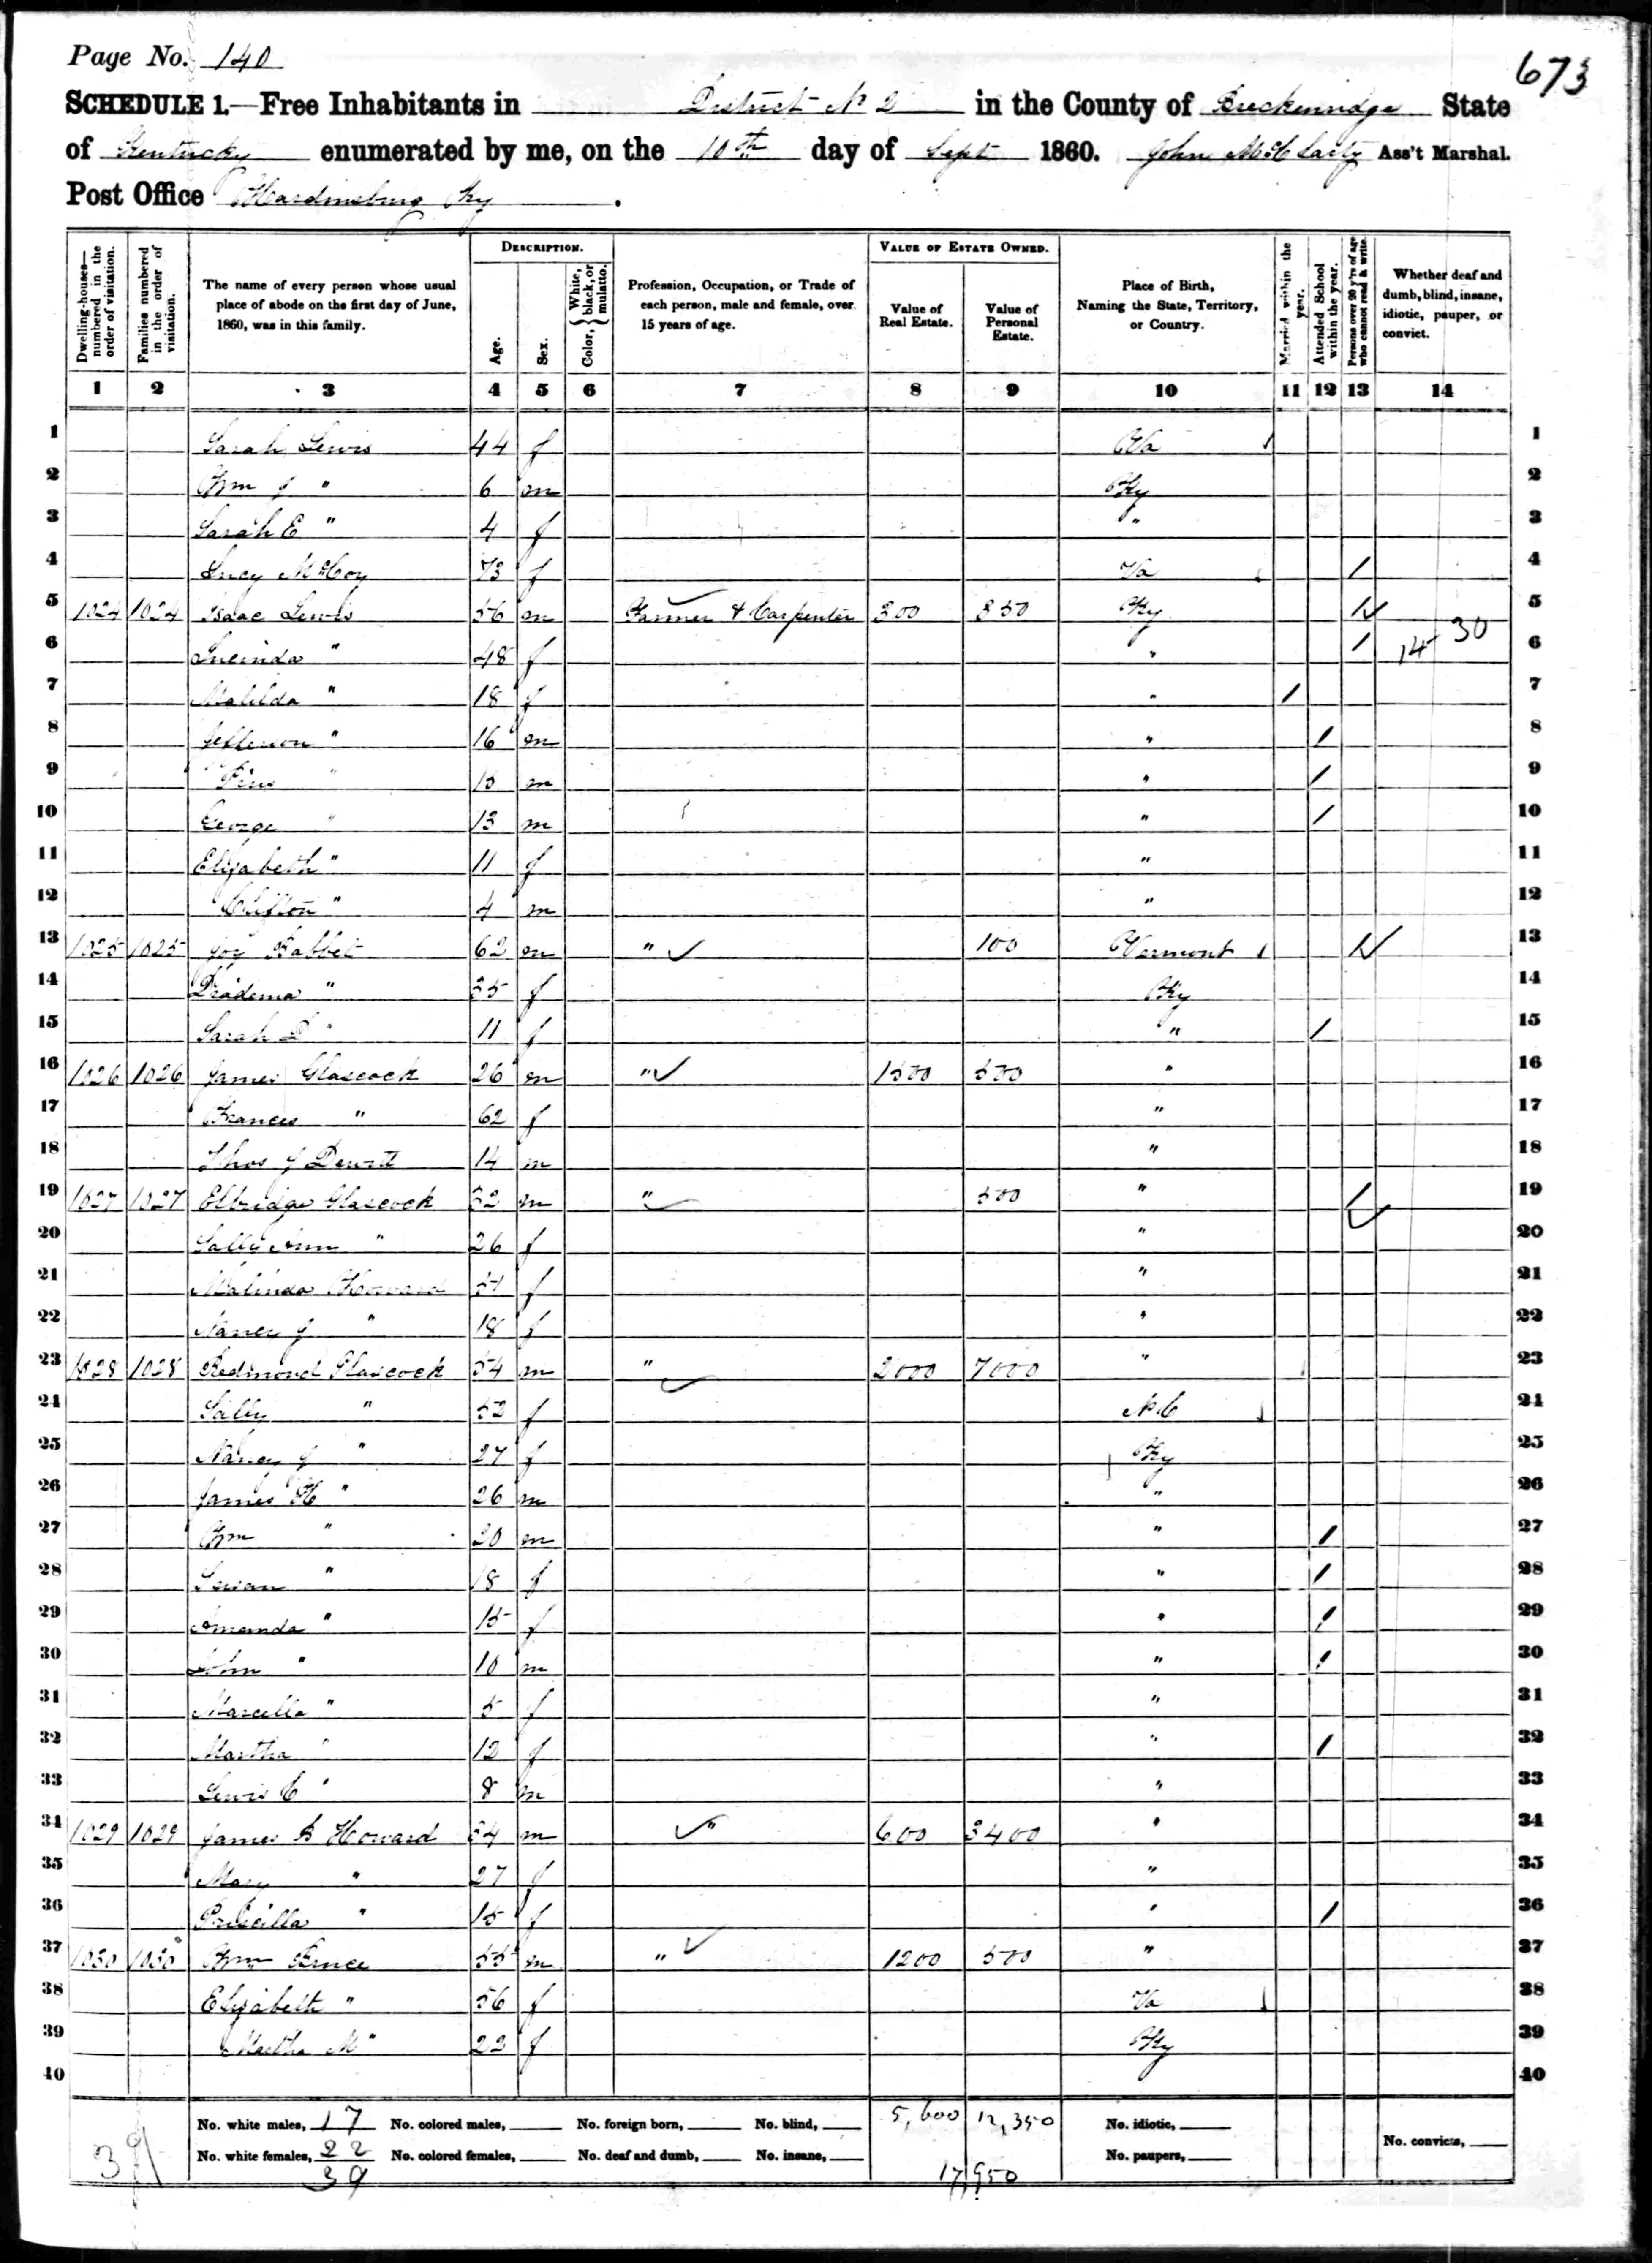 Page No. 140
673
SCHEDULE 1.—Free Inhabitants in District No 2 in the County of Breckenridge State
of Kentucky enumerated by me, on the 10th day of Sept 1860. John McClarty Ass't Marshal.
Post Office Hardinsburg Ky.
Dwelling-houses—numbered in the order of visitation.
Families numbered in the order of visitation.
The name of every person whose usual place of abode on the first day of June, 1860, was in this family.
DESCRIPTION.
Age.
Sex.
Color, { White, black, or mulatto.
Profession, Occupation, or Trade of each person, male and female, over 15 years of age.
VALUE OF ESTATE OWNED.
Value of Real Estate.
Value of Personal Estate.
Place of Birth, Naming the State, Territory, or Country.
Married within the year.
Attended School within the year.
Persons over 20 y'rs of age who cannot read & write.
Whether deaf and dumb, blind, insane, idiotic, pauper, or convict.
1 2 3 4 5 6 7 8 9 10 11 12 13 14
1 Sarah Lewis 44 f Va 1
2 Wm J " 6 m Ky 2
3 Sarah E " 4 f " 3
4 Lucy McCoy 73 f Va / 4
5 1024 1024 Isaac Lewis 56 m Farmer & Carpenter 300 350 Ky / 5
6 Lucinda " 48 f " / 14 30 6
7 Matilda " 18 f " / 7
8 Jefferson " 16 m " / 8
9 " 15 m " / 9
10 George " 13 m " / 10
11 Elizabeth " 11 f " 11
12 Clifton " 4 m " 12
13 1025 1025 Joy Babbet 62 m " 100 Vermont / 13
14 Diadema " 35 f Ky 14
15 Sarah D " 11 f " / 15
16 1026 1026 James Glascock 26 m " 1500 500 " 16
17 Frances " 62 f " 17
18 Thos J Dewitt 14 m " 18
19 1027 1027 Elbridge Glascock 32 m " 500 " / 19
20 Sally Ann " 26 f " 20
21 Malinda Howard f " 21
22 Nancy J " 18 f " 22
23 1028 1028 Redmond Glascock 54 m " 2000 7000 " 23
24 Sally " 52 f N.C 24
25 Nancy J " 27 f Ky 25
26 James H " 26 m " 26
27 Wm " 20 m " / 27
28 Susan " 18 f " / 28
29 Amanda " 15 f " / 29
30 John " 10 m " / 30
31 Marcella " 5 f " 31
32 Martha " 12 f " / 32
33 Lewis C " 8 m " 33
34 1029 1029 James B Howard 34 m " 600 3400 " 34
35 Mary " 27 f " 35
36 Priscilla " 15 f " / 36
37 1030 1030 Wm 55 m " 1200 500 " 37
38 Elizabeth " 56 f Va 38
39 Martha M " 22 f Ky 39
40 40
39
No. white males, 17 No. colored males, No. foreign born, No. blind, 5,600 12,350 No. idiotic,
No. white females, 22 No. colored females, No. deaf and dumb, No. insane, No. paupers, No. convicts,
39 17,950